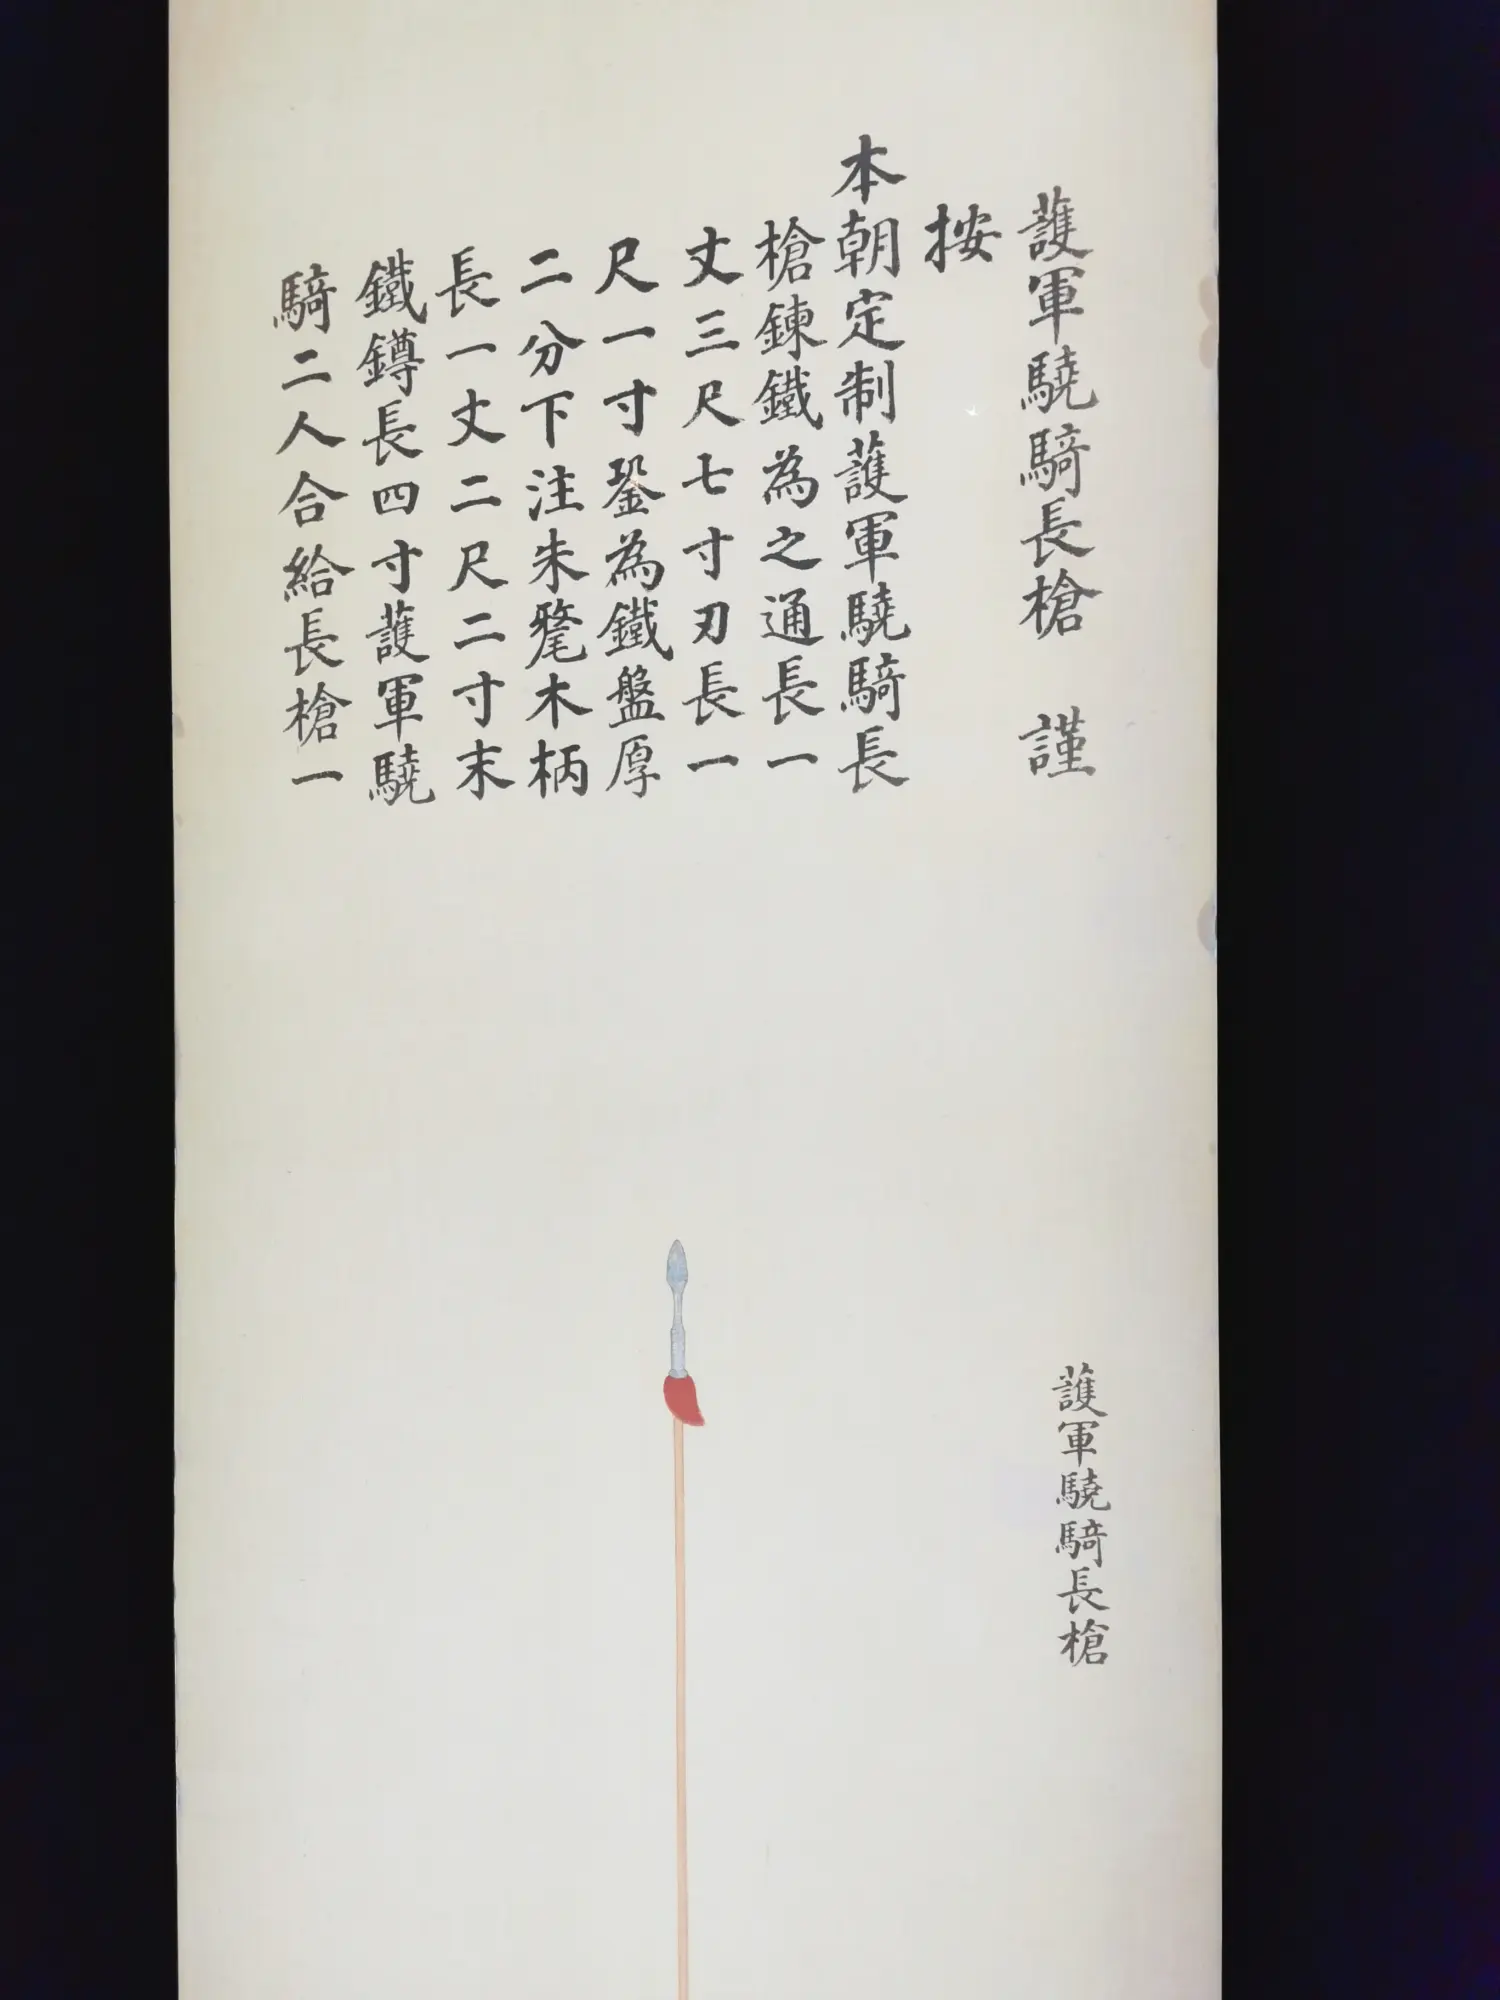 護軍驍騎長槍　謹
按
本朝定制護軍驍騎長
槍鍊鐵為之通長一
丈三尺七寸刃長一
尺一寸銎為鐵盤厚
二分下注朱氂木柄
長一丈二尺二寸末
鐵鐏長四寸護軍驍
騎二人合給長槍一
護軍驍騎長槍